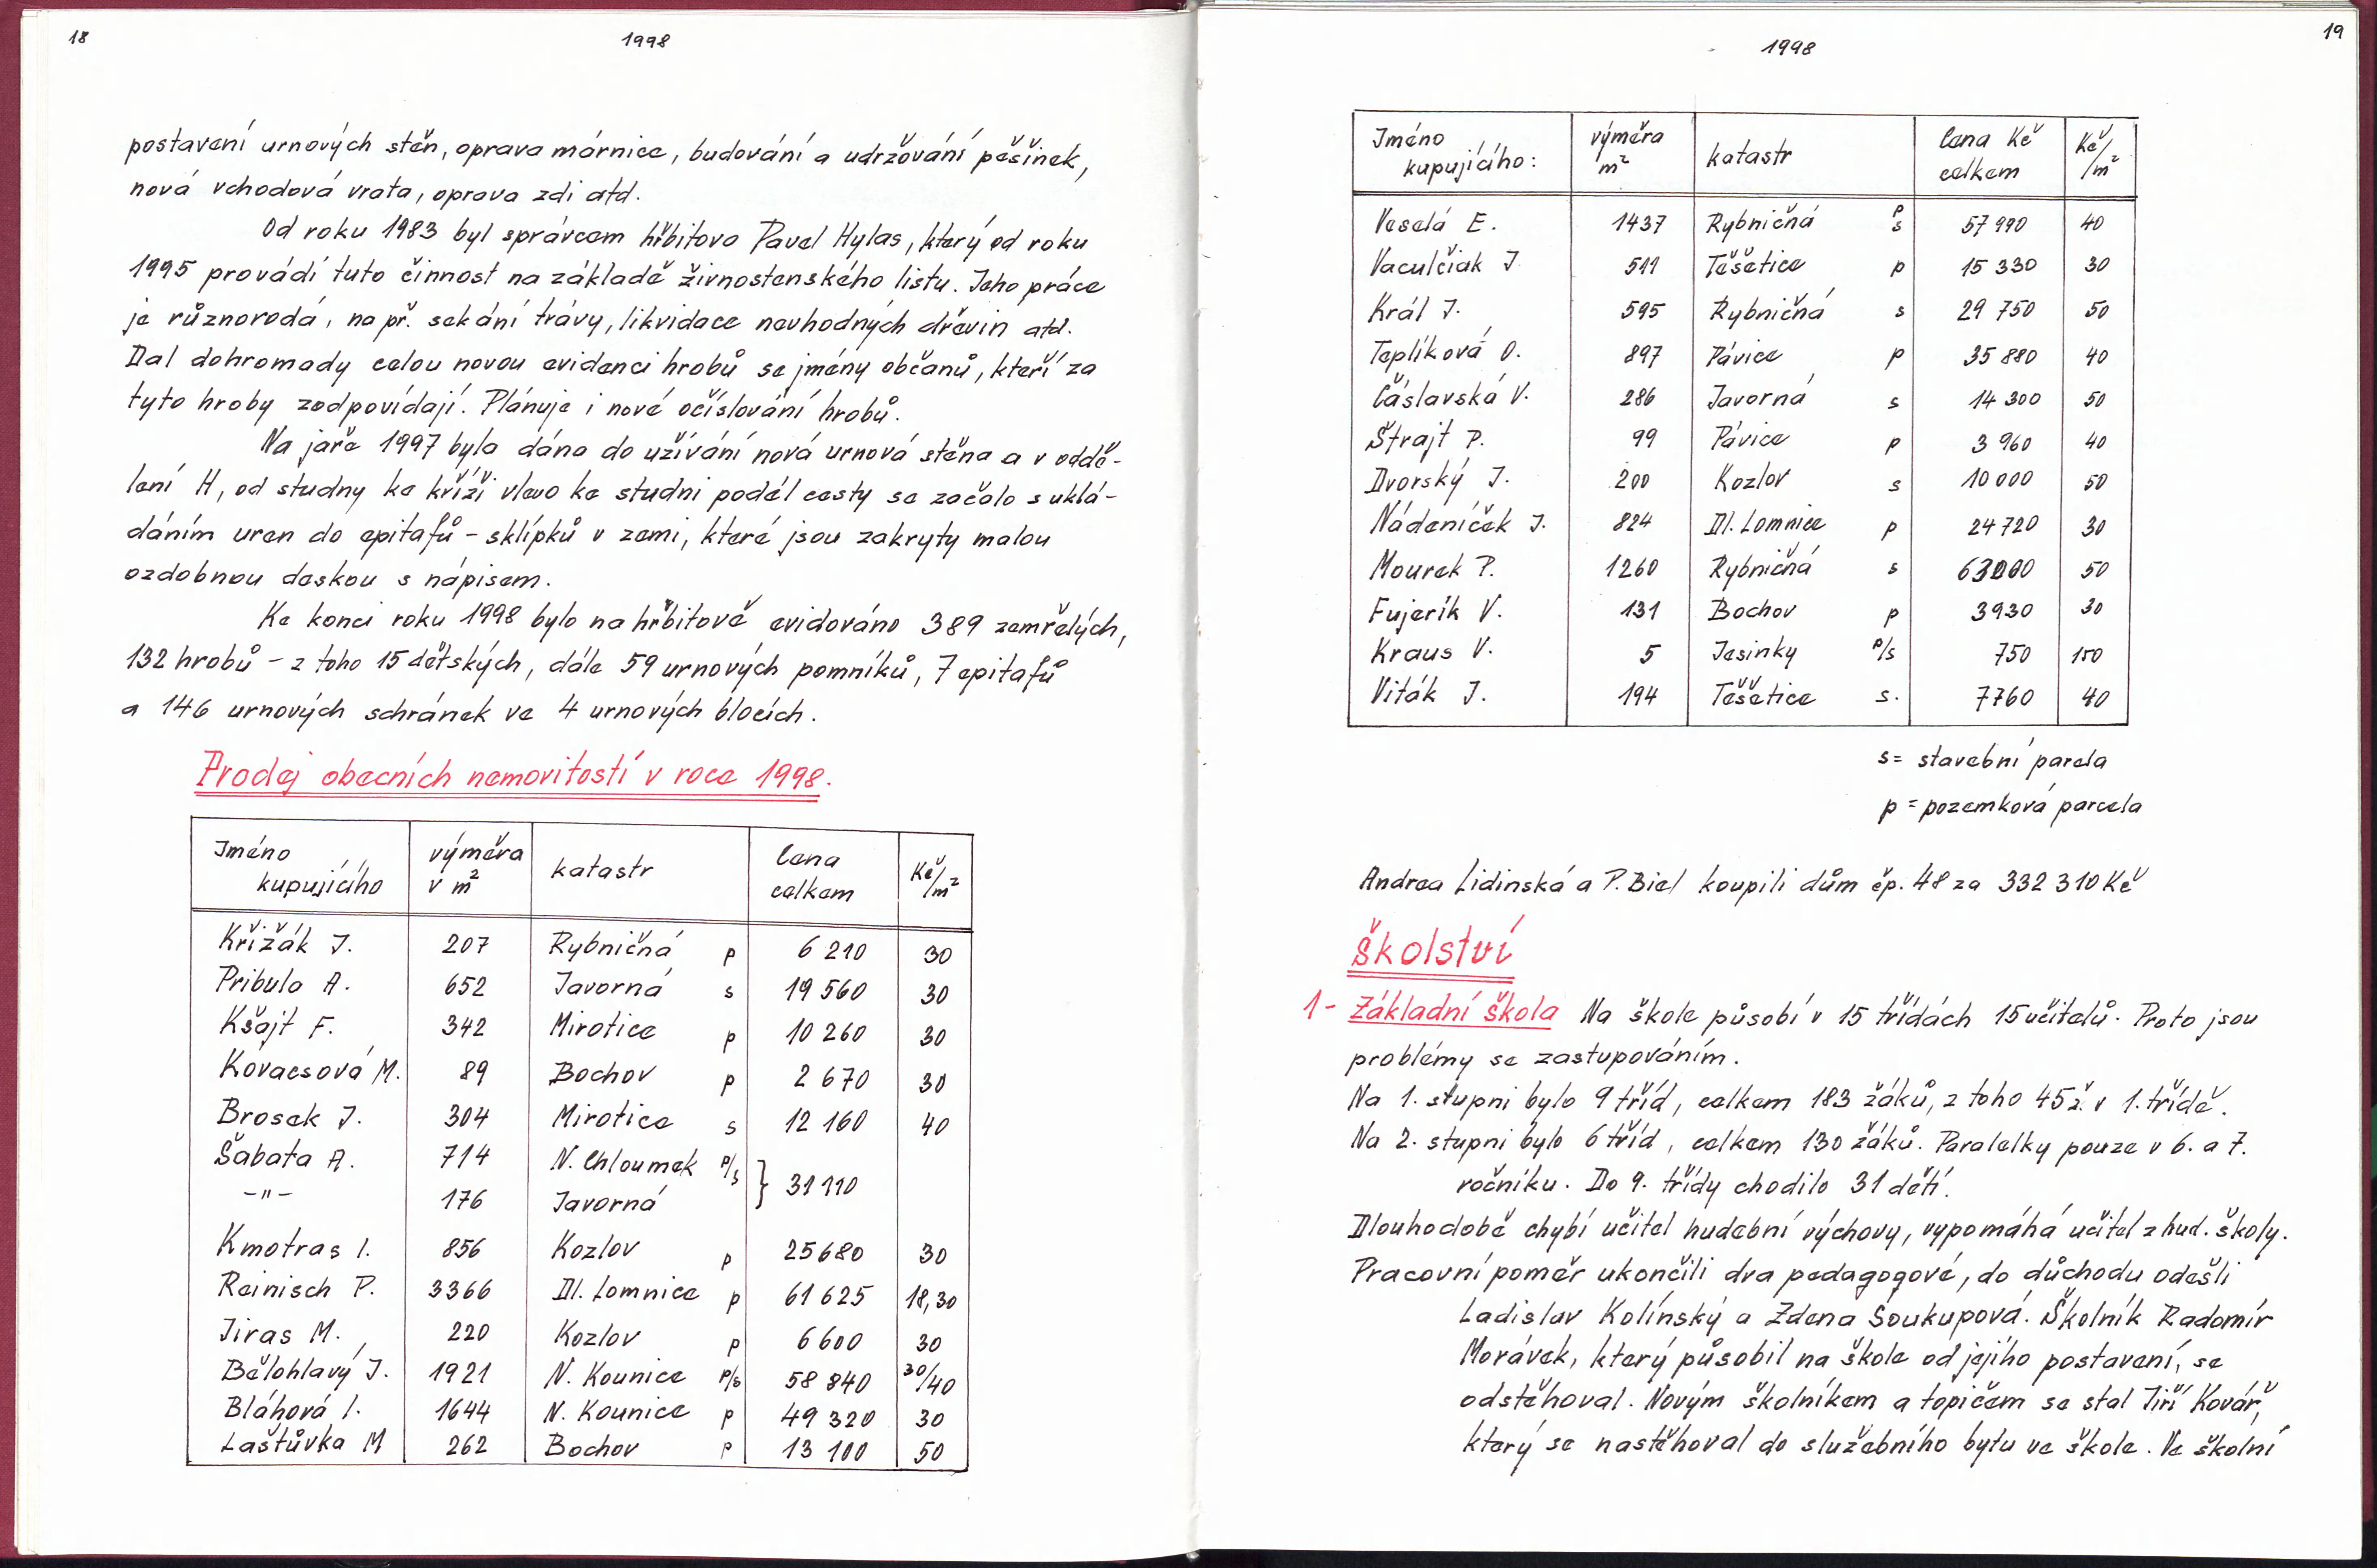 18
1998
postavení urnových stěn, oprava márnice, budování a udržování pěšinek,
nová vchodová vrata, oprava zdi atd.
Od roku 1983 byl správcem hřbitova Pavel Hylas, který od roku
1995 provádí tuto činnost na základě živnostenského listu. Jeho práce
je různorodá, např. sekání trávy, likvidace nevhodných dřevin atd.
Dal dohromady celou novou evidenci hrobů se jmény občanů, kteří za
tyto hroby zodpovídají. Plánuje i nové očíslování hrobů.
Na jaře 1997 byla dána do užívání nová urnová stěna a v oddě-
lení H, od studny ke kříži vlevo ke studni podél cesty se začalo s uklá-
dáním uren do epitafů - sklípků v zemi, které jsou zakryty malou
ozdobnou deskou s nápisem.
Ke konci roku 1998 bylo na hřbitově evidováno 389 zemřelých,
132 hrobů - z toho 15 dětských, dále 59 urnových pomníků, 7 epitafů
a 146 urnových schránek ve 4 urnových blocích.
Prodej obecních nemovitostí v roce 1998.
Jméno kupujícího výměra v m² katastr Cena celkem Kč/m²
Křižák J. 207 Rybničná p 6 210 30
Pribula A. 652 Javorná s 19 560 30
Kšajt F. 342 Mirotice p 10 260 30
Kovacsová M. 89 Bochov p 2 670 30
Brosek J. 304 Mirotice s 12 160 40
Šabata A. 714 N. Chloumek p/s } 31 110
-"- 176 Javorná
Kmotras I. 856 Kozlov p 25680 30
Reinisch P. 3366 Dl. Lomnice p 61 625 18,30
Jiras M. 220 Kozlov p 6 600 30
Bělohlavý J. 1921 N. Kounice p/s 58 840 30/40
Bláhová I. 1644 N. Kounice p 49 320 30
Laštůvka M 262 Bochov p 13 100 50
1998
19
Jméno kupujícího: výměra m² katastr Cena Kč celkem Kč/m²
Veselá E. 1437 Rybničná p s 57 990 40
Vaculčiak J. 511 Těšetice p 15 330 30
Král J. 595 Rybničná s 29 750 50
Teplíková O. 897 Pávice p 35 880 40
Čáslavská V. 286 Javorná s 14 300 50
Štrajt P. 99 Pávice p 3 960 40
Dvorský J. 200 Kozlov s 10 000 50
Nádeníček J. 824 Dl. Lomnice p 24 720 30
Mourek P. 1260 Rybničná s 63000 50
Fujerík V. 131 Bochov p 3930 30
Kraus V. 5 Jesinky p/s 750 150
Viták J. 194 Těšetice s. 7760 40
s = stavební parela
p = pozemková parcela
Andrea Lidinská a P. Biel koupili dům čp. 48 za 332 310 Kč
Školství
1 - Základní škola Na škole působí v 15 třídách 15 učitelů. Proto jsou
problémy se zastupováním.
Na 1. stupni bylo 9 tříd, celkem 183 žáků, z toho 45 ž. v 1. třídě.
Na 2. stupni bylo 6 tříd, celkem 130 žáků. Paralelky pouze v 6. a 7.
ročníku. Do 9. třídy chodilo 31 dětí.
Dlouhodobě chybí učitel hudební výchovy, vypomáhá učitel z hud. školy.
Pracovní poměr ukončili dva pedagogové, do důchodu odešli
Ladislav Kolínský a Zdena Soukupová. Školník Radomír
Morávek, který působil na škole od jejího postavení, se
odstěhoval. Novým školníkem a topičem se stal Jiří Kovář,
který se nastěhoval do služebního bytu ve škole. Ve školní